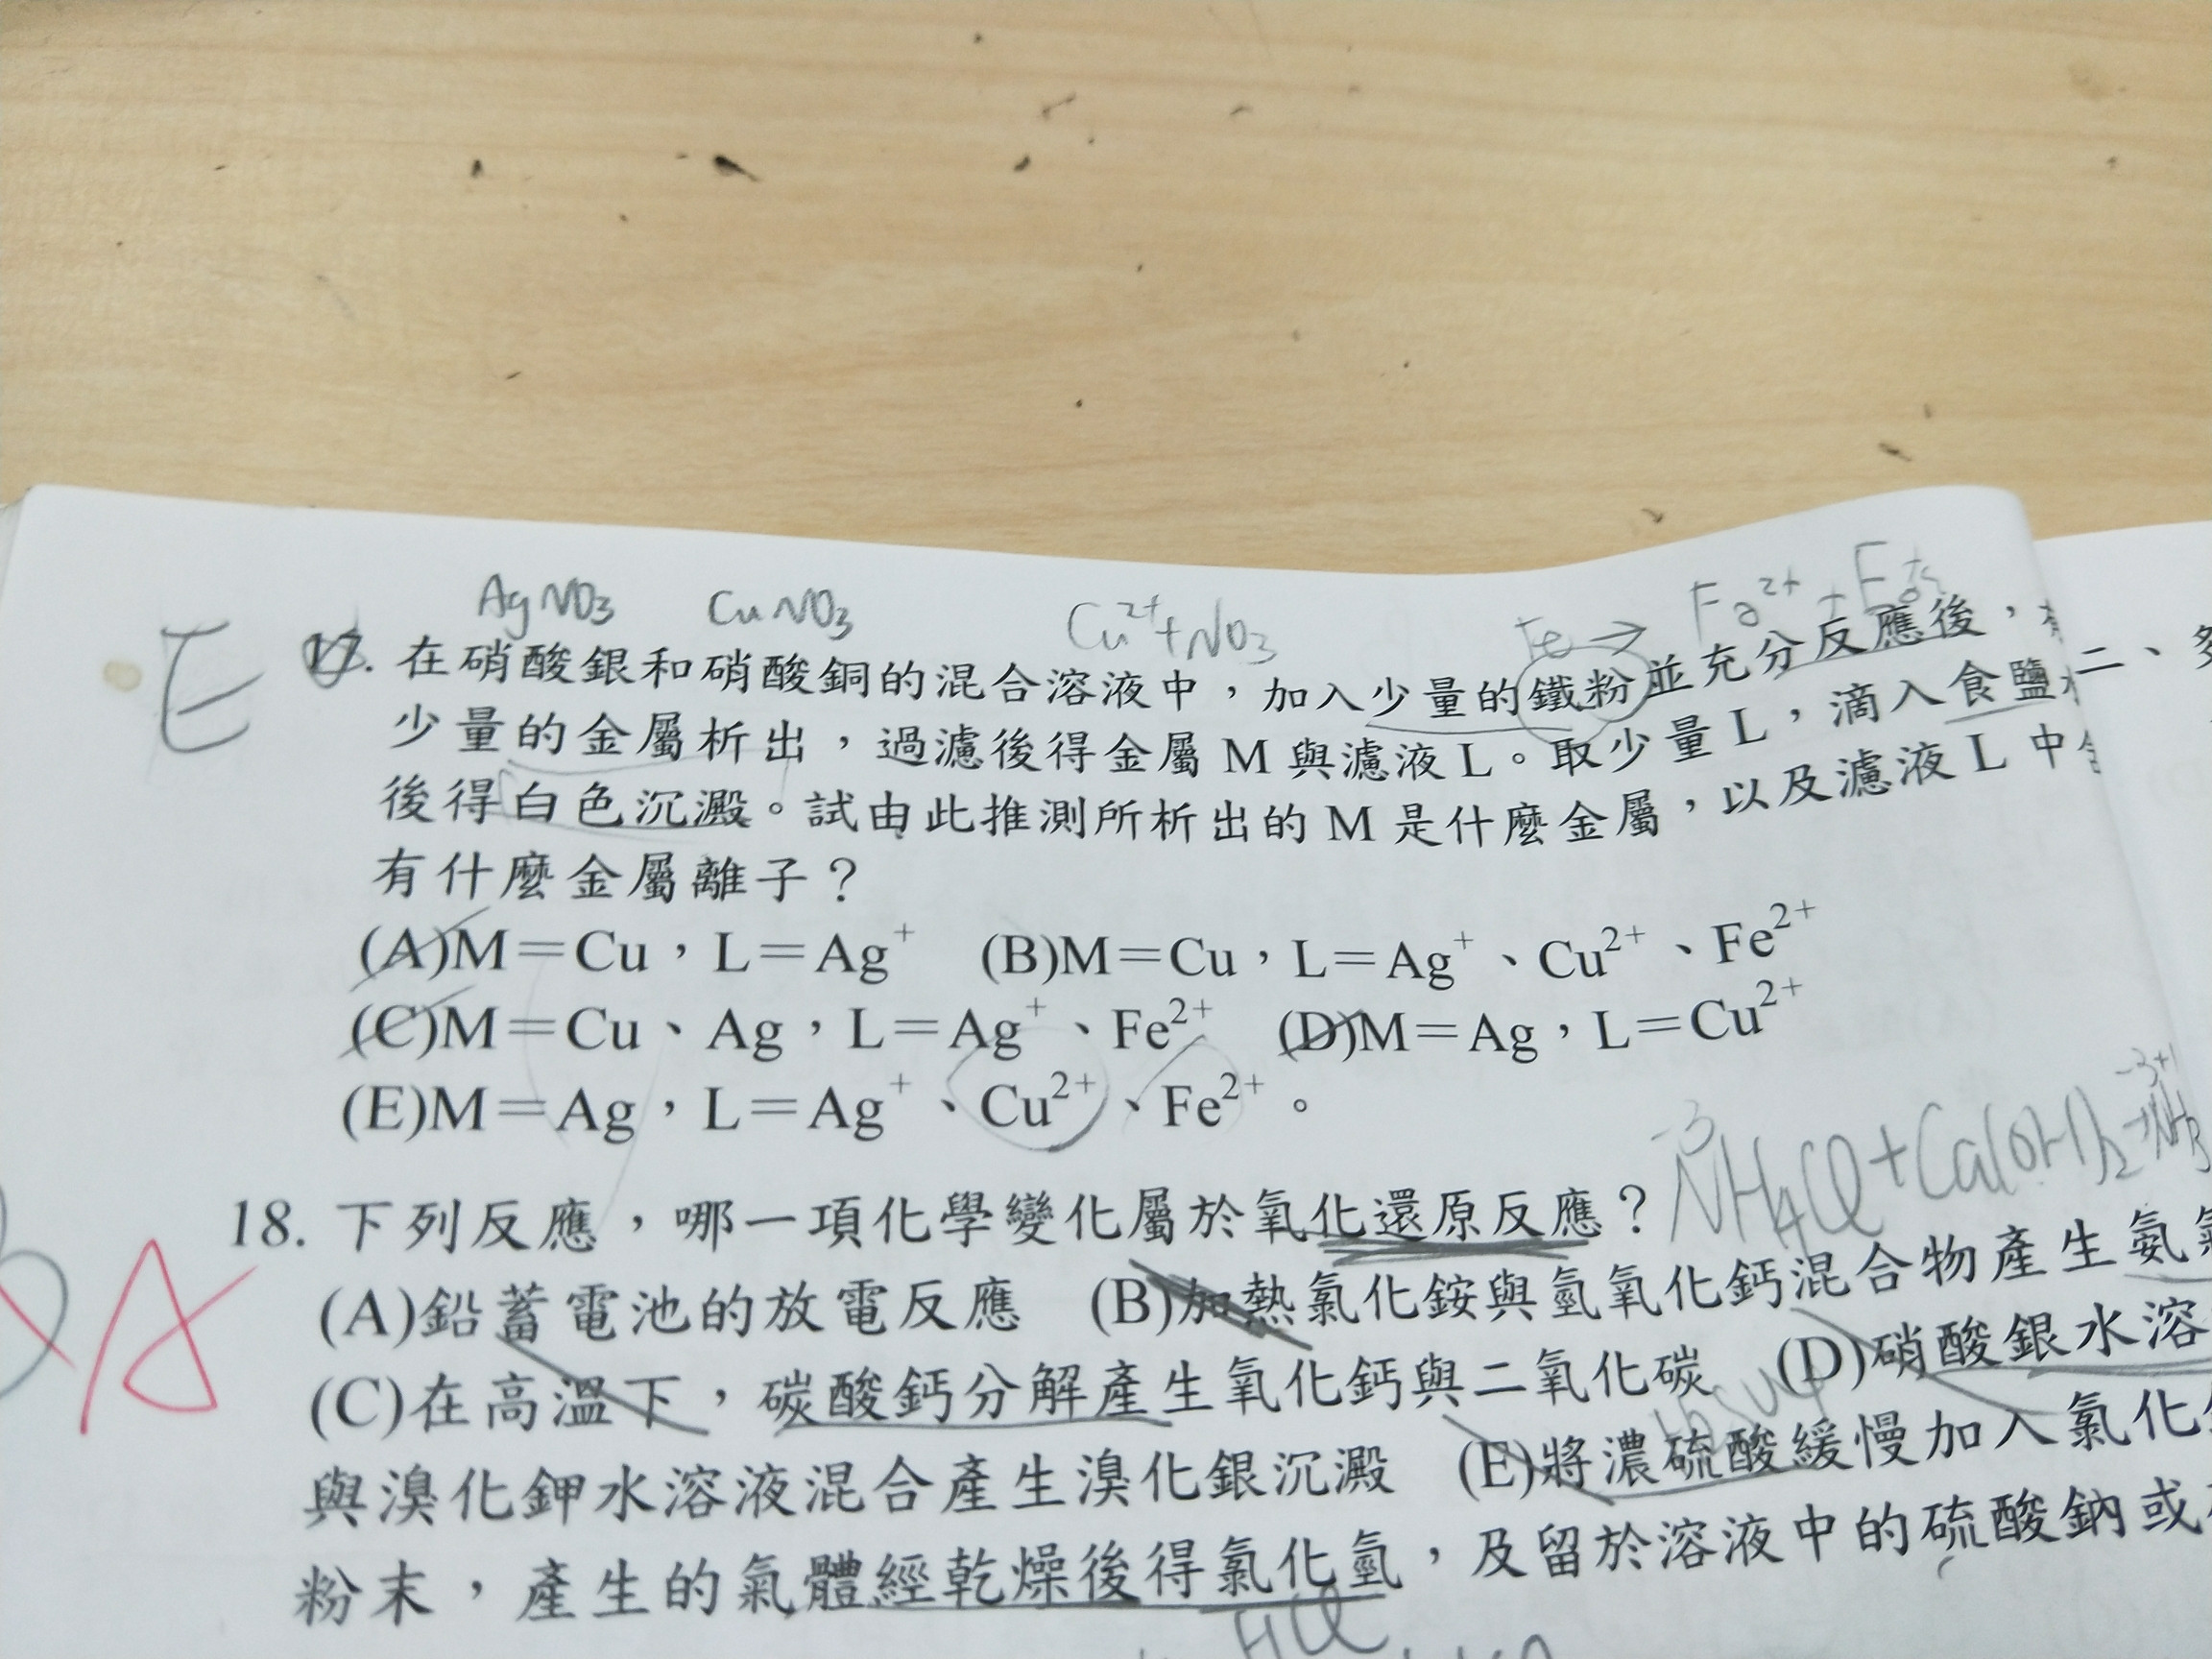 AgNO3 CuNO3 Cu2+ + NO3 Fe →
E 17. 在硝酸銀和硝酸銅的混合溶液中，加入少量的鐵粉並充分反應後，
少量的金屬析出，過濾後得金屬 M 與濾液 L。取少量 L，滴入食鹽
後得白色沉澱。試由此推測所析出的 M 是什麼金屬，以及濾液 L 中
有什麼金屬離子？
(A)M＝Cu，L＝Ag⁺ (B)M＝Cu，L＝Ag⁺、Cu²⁺、Fe²⁺
(C)M＝Cu、Ag，L＝Ag⁺、Fe²⁺ (D)M＝Ag，L＝Cu²⁺
(E)M＝Ag，L＝Ag⁺、Cu²⁺、Fe²⁺。
-3 NH4Cl + Ca(OH)2 → NH3 -3+1
A 18. 下列反應，哪一項化學變化屬於氧化還原反應？
(A)鉛蓄電池的放電反應 (B)加熱氯化銨與氫氧化鈣混合物產生氨
(C)在高溫下，碳酸鈣分解產生氧化鈣與二氧化碳 (D)硝酸銀水溶
與溴化鉀水溶液混合產生溴化銀沉澱 (E)將濃硫酸緩慢加入氯化
粉末，產生的氣體經乾燥後得氯化氫，及留於溶液中的硫酸鈉或
HCl
二、